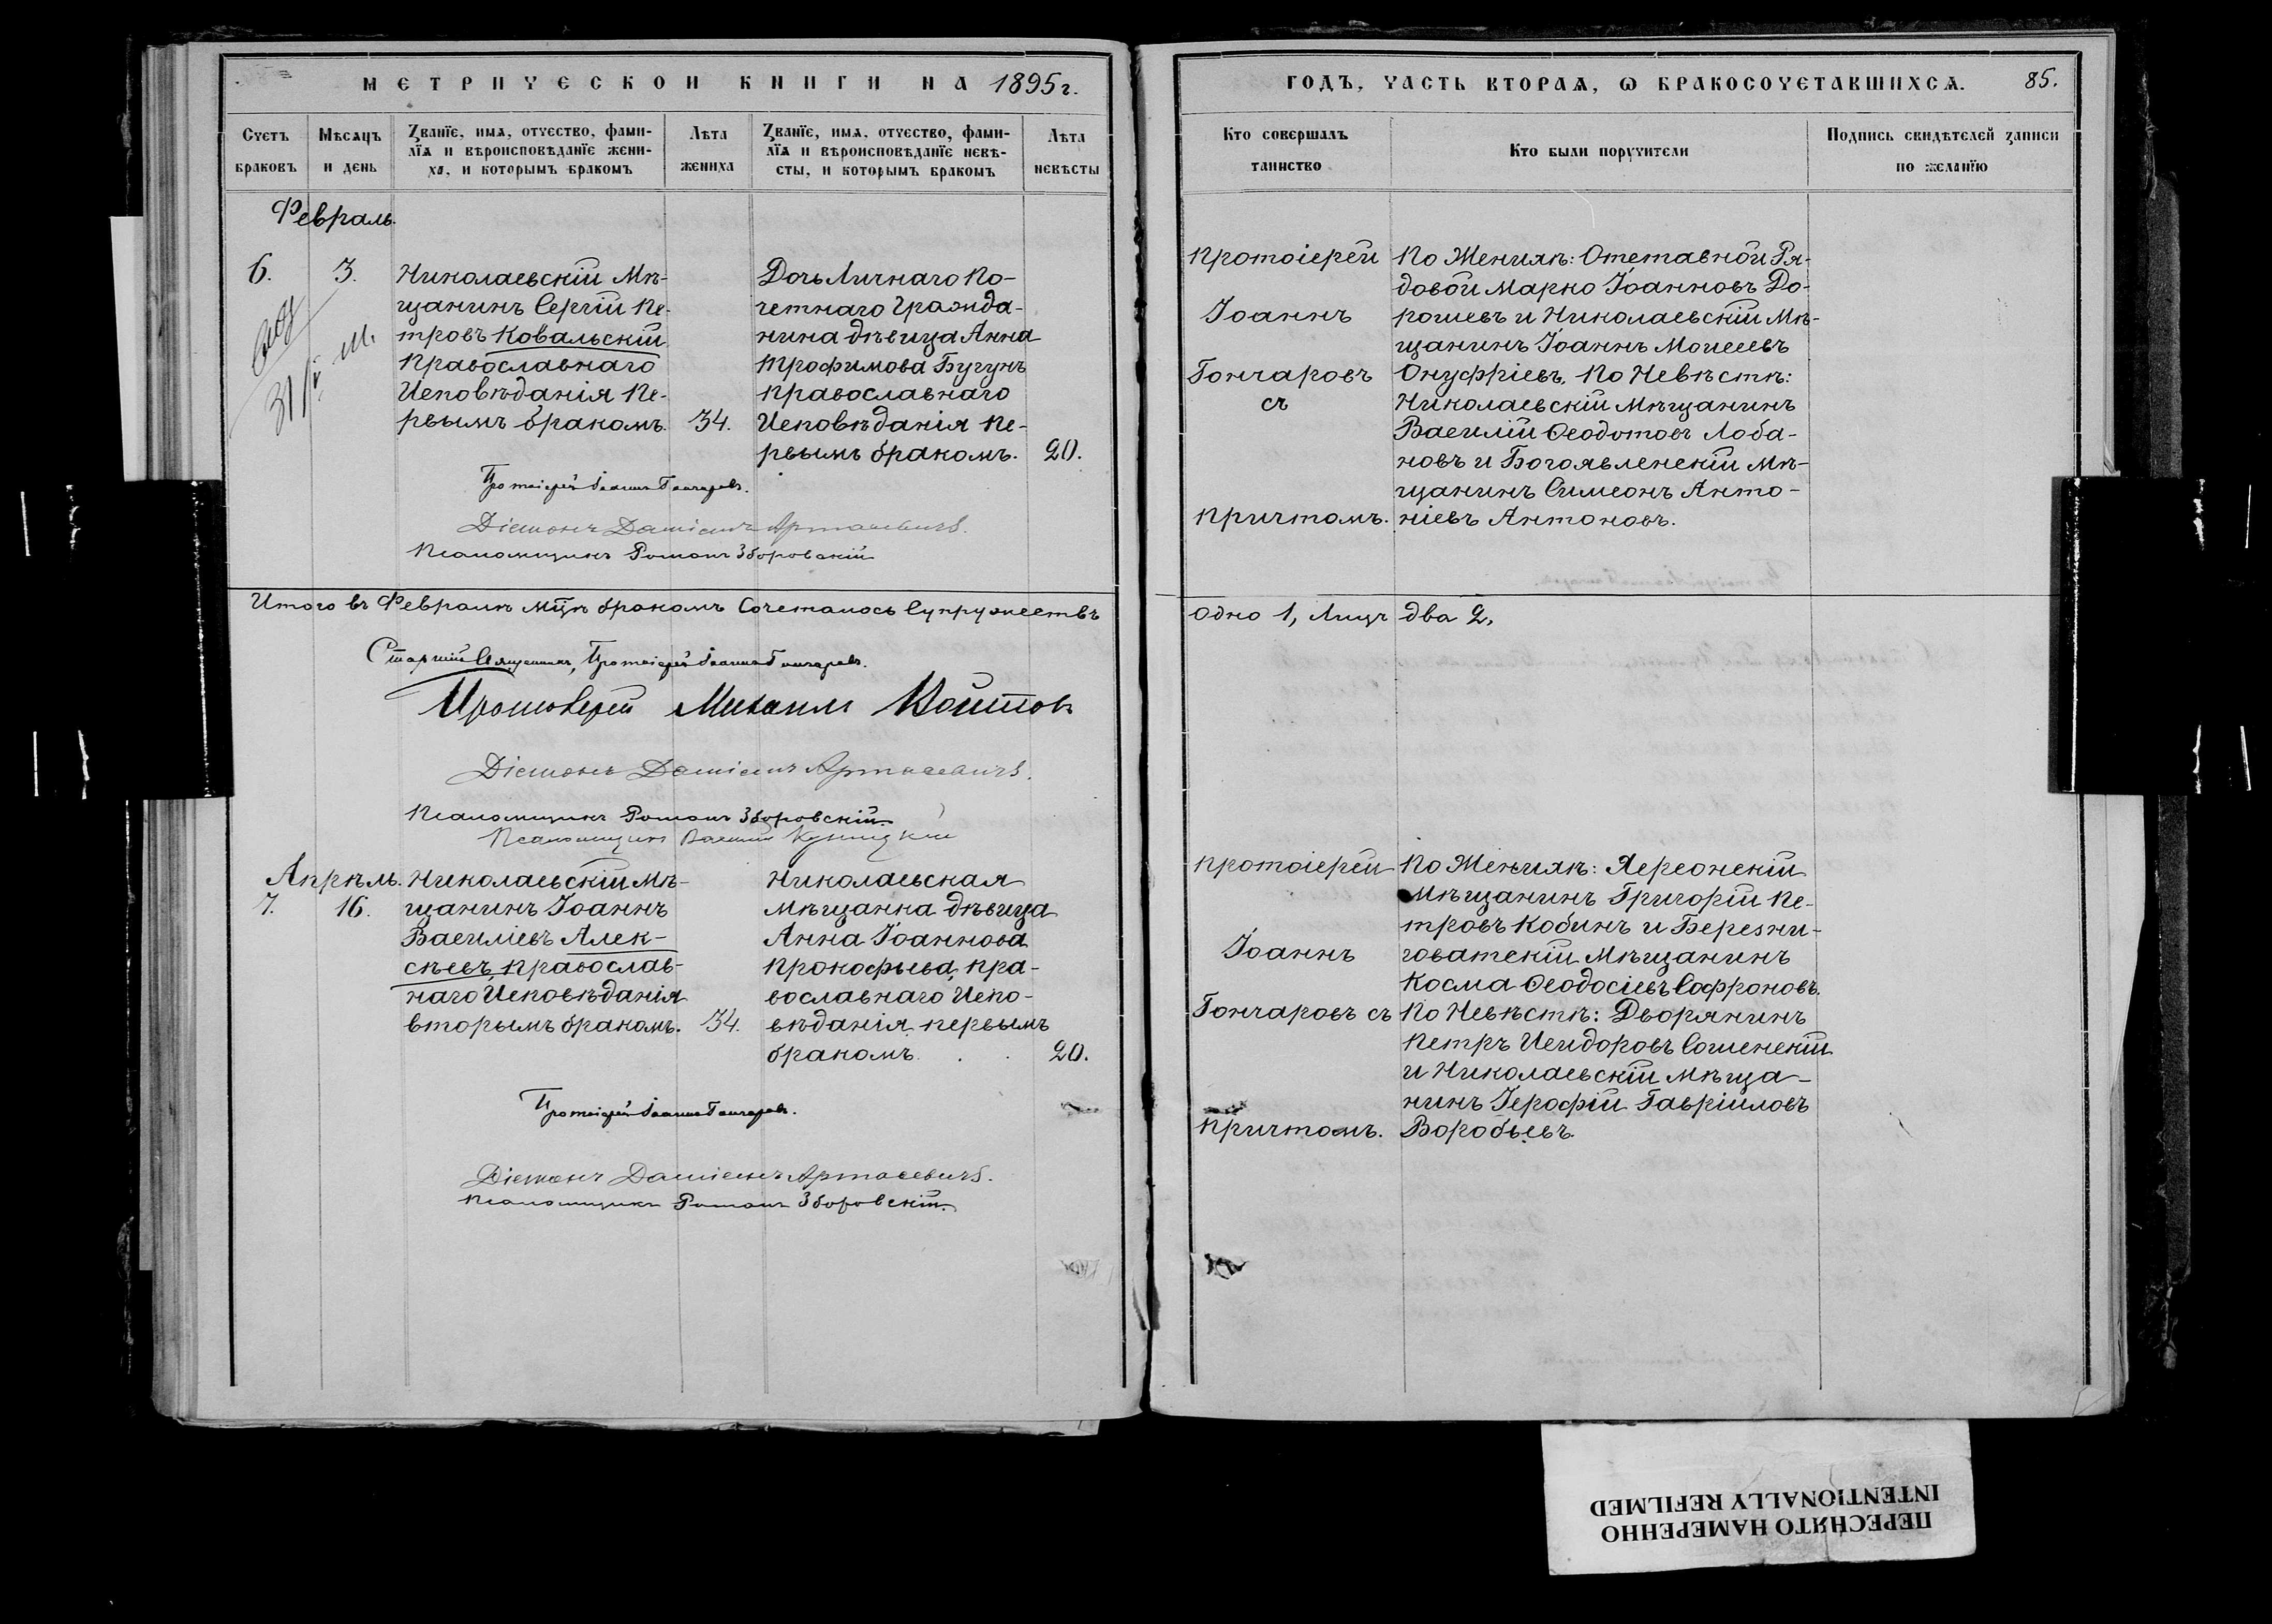 МЕТРИЧЕСКОЙ КНИГИ НА 1895 г.
Счетъ браковъ
Мѣсяцъ и день
Званїе, имя, отчество, фами-
лїя и вѣроисповѣданїе жени-
ха, и которымъ бракомъ
Лѣта жениха
Званїе, имя, отчество, фами-
лїя и вѣроисповѣданїе невѣ-
сты, и которымъ бракомъ
Лѣта невѣсты
Февраль.
6.
3.
Николаевскій Мѣ-
щанинъ Сергій Пе-
тровъ Ковальскій
Православнаго
Исповѣданія Пе-
рвымъ бракомъ.
34.
Дочь Личнаго По-
четнаго Гражда-
нина дѣвица Анна
Трофимова Бугунъ
Православнаго
Исповѣданія Пе-
рвымъ бракомъ.
20.
Протоіерей Іоаннъ Гончаровъ.
Діаконъ Даміанъ Артасевичъ.
Псаломщикъ Романъ Зборовскій
Итого въ Февралѣ мцѣ бракомъ Сочеталось Супружествъ
Старшій Священникъ, Протоіерей Іоаннъ Гончаровъ.
Протоіерей Михаилъ
Діаконъ Даміанъ Артасевичъ.
Псаломщикъ Романъ Зборовскій.
Псаломщик Василій
Апрѣль.
7.
16.
Николаевскій Мѣ-
щанинъ Іоаннъ
Василіевъ Алек-
сѣевъ, Православ-
наго Исповѣданія
вторымъ бракомъ.
34.
Николаевская
Мѣщанка дѣвица
Анна Іоаннова
Прокофьева, Пра-
вославнаго Испо-
вѣданія первымъ
бракомъ
20.
Протоіерей Іоаннъ Гончаровъ.
Діаконъ Даміанъ Артасевичъ.
Псаломщикъ Романъ Зборовскій.
ГОДЪ, ЧАСТЬ ВТОРАЯ, Ѡ БРАКОСОЧЕТАВШИХСЯ.
85.
Кто совершалъ таинство
Кто были поручители
Подпись свидѣтелей записи по желанїю
Протоіерей
Іоаннъ
Гончаровъ
съ
Причтомъ.
По Женихѣ: Отставной Ря-
довой Марко Іоанновъ До-
рошевъ и Николаевскій Мѣ-
щанинъ Іоаннъ Моисеевъ
Онуфріевъ. По Невѣстѣ:
Николаевскій Мѣщанинъ
Василій Ѳеодотовъ Лоба-
новъ и Богоявленскій Мѣ-
щанинъ Симеонъ Анто-
ніевъ Антоновъ.
Одно 1, Лицъ два 2,
Протоіерей
Іоаннъ
Гончаровъ съ
Причтомъ.
По Женихѣ: Херсонскій
Мѣщанинъ Григорій Пе-
тровъ Кобинъ и Березни-
говатскій Мѣщанинъ
Косма Ѳеодосіевъ Софроновъ.
По Невѣстѣ: Дворянинъ
Петръ Исидоровъ Сошенскій
и Николаевскій Мѣща-
нинъ Іерофій Гавріиловъ
Воробьевъ.
ПЕРЕСНЯТО НАМЕРЕННО
INTENTIONALLY REFILMED